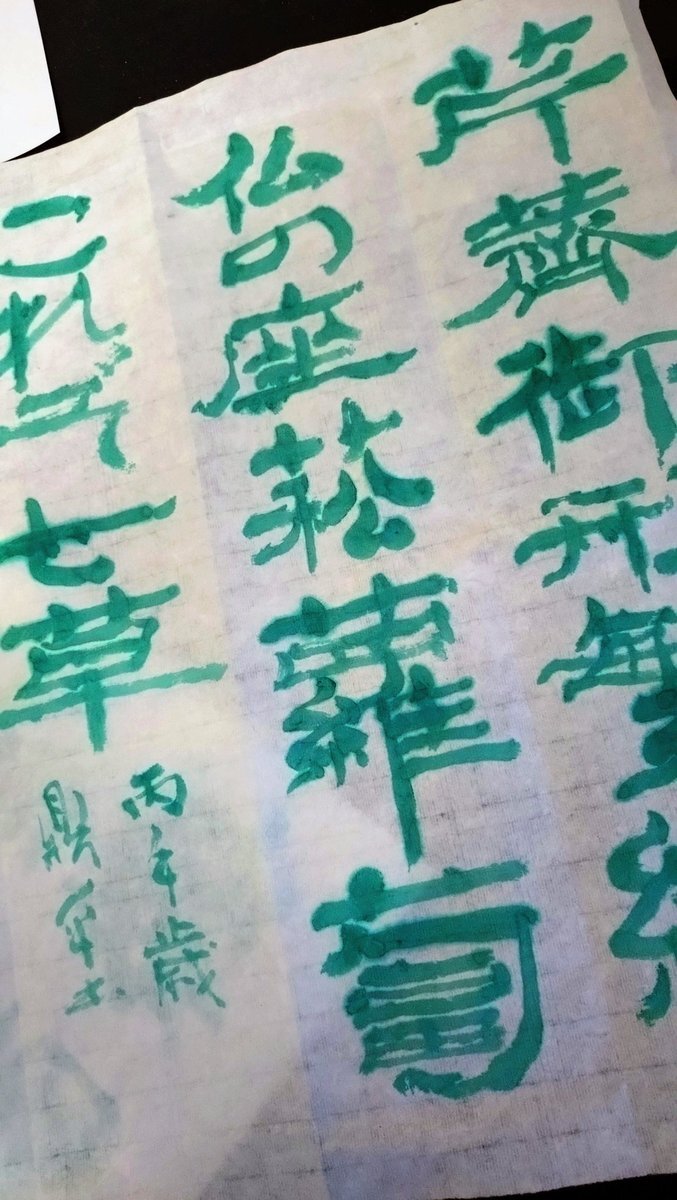 芹薺御形繁縷
仏の座菘蘿蔔
これぞ七草
丙午歳